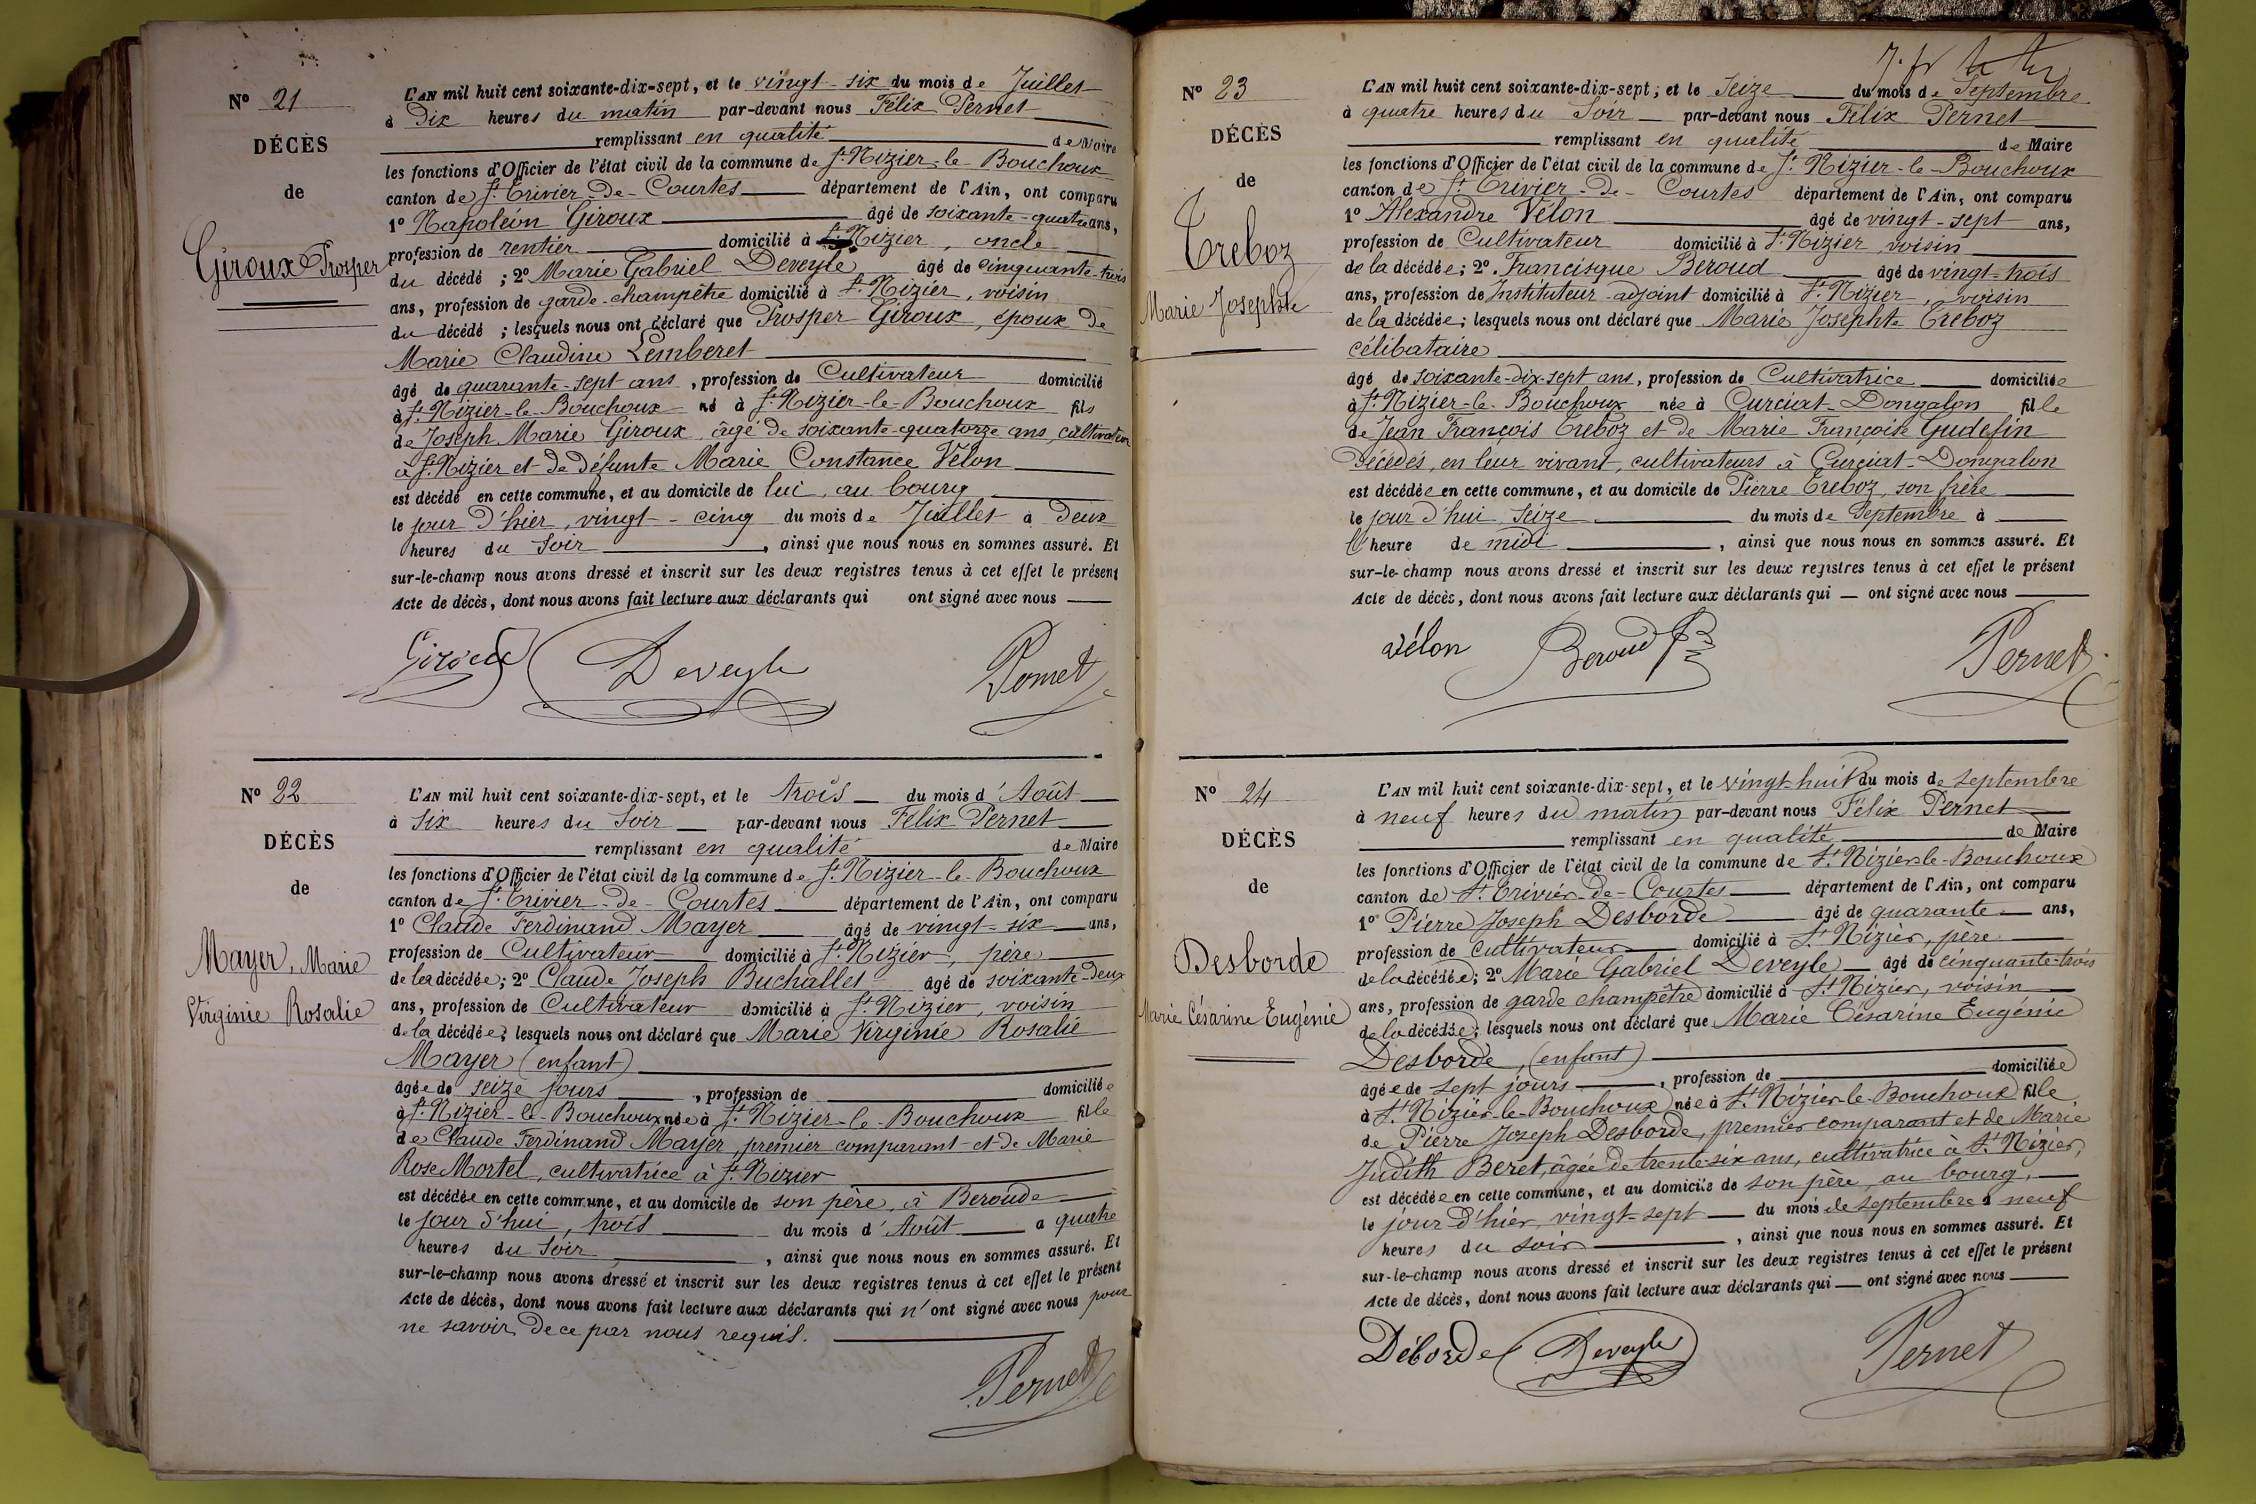 N° 21
DÉCÈS
de
Giroux Prosper
L'AN mil huit cent soixante-dix-sept, et le vingt-six du mois de Juillet
à Dix heures du matin par-devant nous Félix Pernet
remplissant en qualité de Maire
les fonctions d'Officier de l'état civil de la commune de St Nizier-le-Bouchoux
canton de St Trivier-de-Courtes département de l'Ain, ont comparu
1° Napoléon Giroux âgé de soixante-quatre ans,
profession de rentier domicilié à St Nizier, oncle
du décédé ; 2° Marie Gabriel Deveyle âgé de cinquante-trois
ans, profession de garde-champêtre domicilié à St Nizier, voisin
du décédé ; lesquels nous ont déclaré que Prosper Giroux, époux de
Marie Claudine Lemberet
âgé de quarante-sept ans, profession de Cultivateur domicilié
à St Nizier-le-Bouchoux né à St Nizier-le-Bouchoux fils
de Joseph Marie Giroux âgé de soixante-quatorze ans, cultivateur
à St Nizier et de défunte Marie Constance Vélon
est décédé en cette commune, et au domicile de lui, au bourg
le jour d'hier, vingt-cinq du mois de Juillet à Deux
heures du Soir, ainsi que nous nous en sommes assuré. Et
sur-le-champ nous avons dressé et inscrit sur les deux registres tenus à cet effet le présent
Acte de décès, dont nous avons fait lecture aux déclarants qui ont signé avec nous
Giroux Deveyle Pernet
N° 22
DÉCÈS
de
Mayer, Marie
Virginie Rosalie
L'AN mil huit cent soixante-dix-sept, et le trois du mois d'Août
à Six heures du Soir par-devant nous Félix Pernet
remplissant en qualité de Maire
les fonctions d'Officier de l'état civil de la commune de St Nizier-le-Bouchoux
canton de St Trivier-de-Courtes département de l'Ain, ont comparu
1° Claude Ferdinand Mayer âgé de vingt-six ans,
profession de Cultivateur domicilié à St Nizier, père
de la décédée ; 2° Claude Joseph Buchallet âgé de soixante-deux
ans, profession de Cultivateur domicilié à St Nizier, voisin
de la décédée ; lesquels nous ont déclaré que Marie Virginie Rosalie
Mayer (enfant)
âgée de seize jours, profession de domiciliée
à St Nizier-le-Bouchoux née à St Nizier-le-Bouchoux fille
de Claude Ferdinand Mayer, premier comparant et de Marie
Rose Mortel, cultivatrice à St Nizier
est décédée en cette commune, et au domicile de son père, à Beroude
le jour d'hui, trois du mois d'Août à quatre
heures du Soir, ainsi que nous nous en sommes assuré. Et
sur-le-champ nous avons dressé et inscrit sur les deux registres tenus à cet effet le présent
Acte de décès, dont nous avons fait lecture aux déclarants qui n'ont signé avec nous pour
ne savoir de ce par nous requis.
Pernet
N° 23
DÉCÈS
de
Treboz
Marie Josephte
L'AN mil huit cent soixante-dix-sept, et le Seize du mois de Septembre
à quatre heures du Soir par-devant nous Félix Pernet
remplissant en qualité de Maire
les fonctions d'Officier de l'état civil de la commune de St Nizier-le-Bouchoux
canton de St Trivier-de-Courtes département de l'Ain, ont comparu
1° Alexandre Vélon âgé de vingt-sept ans,
profession de Cultivateur domicilié à St Nizier, voisin
de la décédée ; 2° Francisque Beroud âgé de vingt-trois
ans, profession de Instituteur-adjoint domicilié à St Nizier, voisin
de la décédée ; lesquels nous ont déclaré que Marie Josephte Treboz
célibataire
âgé de soixante-dix-sept ans, profession de Cultivatrice domiciliée
à St Nizier-le-Bouchoux née à Curciat-Dongalon fille
de Jean François Treboz et de Marie Françoise Gudefin
Décédés, en leur vivant, cultivateurs à Curciat-Dongalon
est décédée en cette commune, et au domicile de Pierre Treboz, son frère
le jour d'hui, Seize du mois de Septembre à
l'heure de midi, ainsi que nous nous en sommes assuré. Et
sur-le-champ nous avons dressé et inscrit sur les deux registres tenus à cet effet le présent
Acte de décès, dont nous avons fait lecture aux déclarants qui ont signé avec nous
Vélon Beroud Pernet
N° 24
DÉCÈS
de
Desborde
Marie Césarine Eugénie
L'AN mil huit cent soixante-dix-sept, et le vingt-huit du mois de septembre
à neuf heures du matin par-devant nous Félix Pernet
remplissant en qualité de Maire
les fonctions d'Officier de l'état civil de la commune de St Nizier-le-Bouchoux
canton de St Trivier-de-Courtes département de l'Ain, ont comparu
1° Pierre Joseph Desborde âgé de quarante ans,
profession de cultivateur domicilié à St Nizier, père
de la décédée ; 2° Marie Gabriel Deveyle âgé de cinquante-trois
ans, profession de garde champêtre domicilié à St Nizier, voisin
de la décédée ; lesquels nous ont déclaré que Marie Césarine Eugénie
Desborde, (enfant)
âgée de sept jours, profession de domiciliée
à St Nizier-le-Bouchoux née à St Nizier-le-Bouchoux fille
de Pierre Joseph Desborde, premier comparant et de Marie
Judith Beret, âgée de trente-six ans, cultivatrice à St Nizier,
est décédée en cette commune, et au domicile de son père, au bourg,
le jour d'hier, vingt-sept du mois de septembre à neuf
heures du soir, ainsi que nous nous en sommes assuré. Et
sur-le-champ nous avons dressé et inscrit sur les deux registres tenus à cet effet le présent
Acte de décès, dont nous avons fait lecture aux déclarants qui ont signé avec nous
Déborde Deveyle Pernet